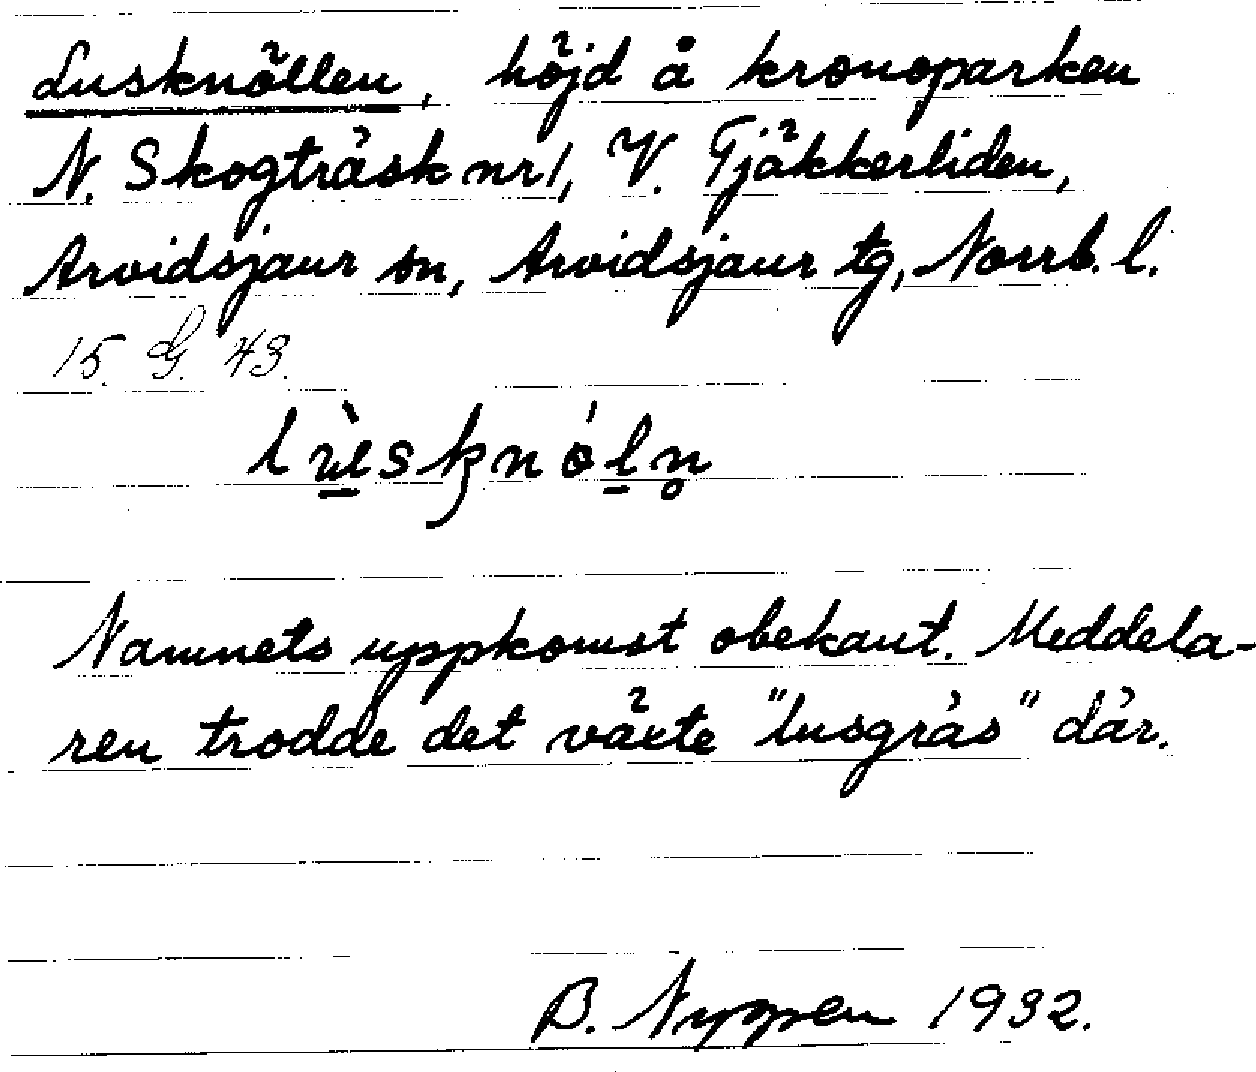 Lusknöllen, höjd å kronoparken
N. Skogträsk nr 1, V. Tjäkkerliden,
Arvidsjaur sn, Arvidsjaur tg, Norrb. l.
15. G. 43.
Namnets uppkomst obekant. Meddela-
ren trodde det växte "lusgräs" där.
B. Nyppen 1932.